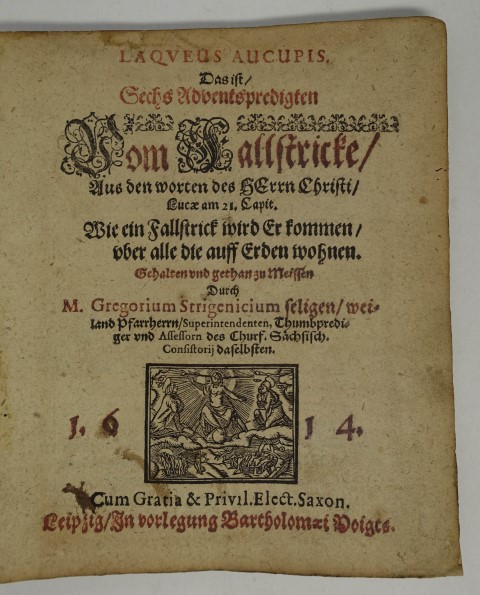 LAQVEUS AUCUPIS.
Das ist/
Sechs Adventspredigten
Vom Fallstricke/
Aus den worten des HErrn Christi/
Lucæ am 21. Capit.
Wie ein Fallstrick wird Er kommen/
vber alle die auff Erden wohnen.
Gehalten vnd gethan zu Meissen
Durch
M. Gregorium Strigenicium seligen/ wei-
land Pfarrherrn/ Superintendenten, Thumbpredi-
ger vnd Assessorn des Churf. Sächsisch.
Consistorij daselbsten.
1. 6 1 4.
Cum Gratia & Privil. Elect. Saxon.
Leipzig/ In vorlegung Bartholomæi Voigts.